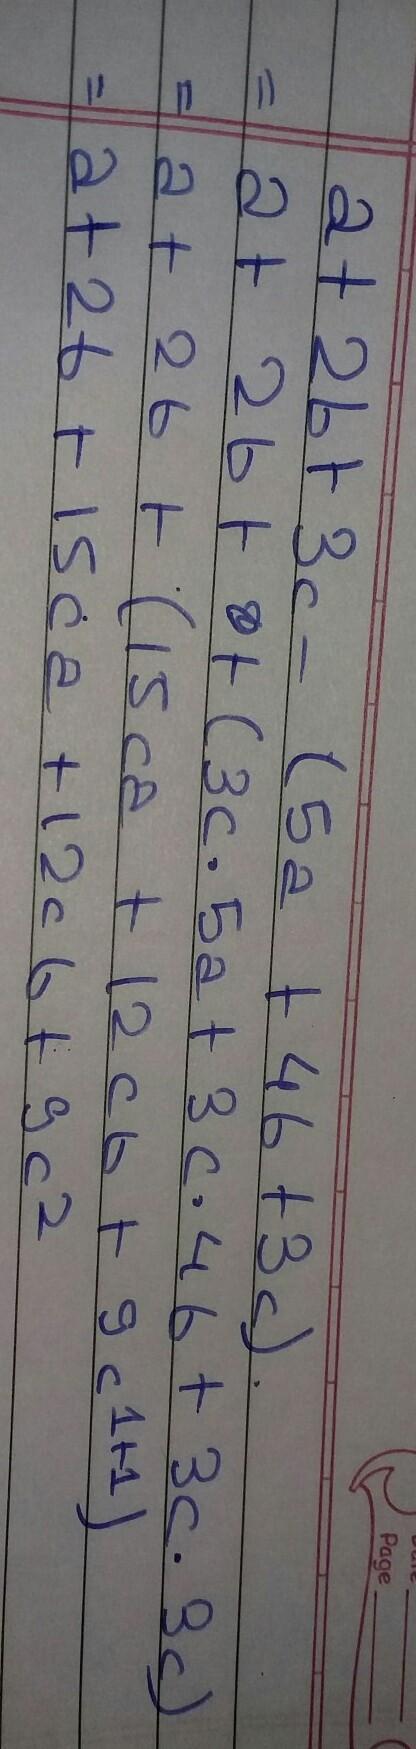 Page
a + 2b + 3c - (5a + 4b + 3c).
= a + 2b + + (3c.5a + 3c.4b + 3c.3c)
= a + 2b + (15ca + 12cb + 9c¹⁺¹)
= a + 2b + 15ca + 12cb + 9c²